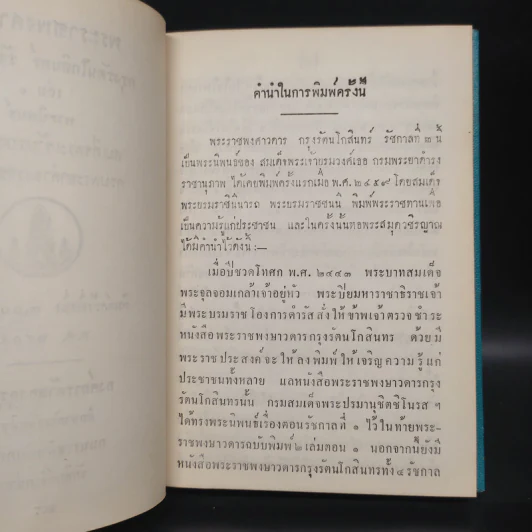 คำนำในการพิมพ์ครั้งนี้
พระราชพงศาวดาร กรุงรัตนโกสินทร์ รัชกาลที่ ๒ นี้
เป็นพระนิพนธ์ของ สมเด็จพระเจ้าบรมวงศ์เธอ กรมพระยาดำรง
ราชานุภาพ ได้เคยพิมพ์ครั้งแรกเมื่อ พ.ศ. ๒๔๕๙ โดยสมเด็จ
พระบรมราชินีนารถ พระบรมราชชนนี พิมพ์พระราชทานเพื่อ
เป็นความรู้แก่ประชาชน และในครั้งนั้นหอพระสมุดวชิรญาณ
ได้มีคำนำไว้ดังนี้ :—
เมื่อปีชวดโทศก พ.ศ. ๒๔๔๓ พระบาทสมเด็จ
พระจุลจอมเกล้าเจ้าอยู่หัว พระปิยมหาราชาธิราชเจ้า
มีพระบรมราชโองการดำรัสสั่งให้ข้าพเจ้าตรวจชำระ
หนังสือพระราชพงษาวดารกรุงรัตนโกสินทร ด้วยมี
พระราชประสงค์จะให้ลงพิมพ์ให้เจริญความรู้แก่
ประชาชนทั้งหลาย แลหนังสือพระราชพงษาวดารกรุง
รัตนโกสินทรนั้น กรมสมเด็จพระปรมานุชิตชิโนรส ฯ
ได้ทรงพระนิพนธ์เรื่องตอนรัชกาลที่ ๑ ไว้ในท้ายพระ-
ราชพงษาวดารฉบับพิมพ์ ๒ เล่มตอน ๑ นอกจากนี้ยังมี
หนังสือพระราชพงษาวดารกรุงรัตนโกสินทรทั้ง ๔ รัชกาล